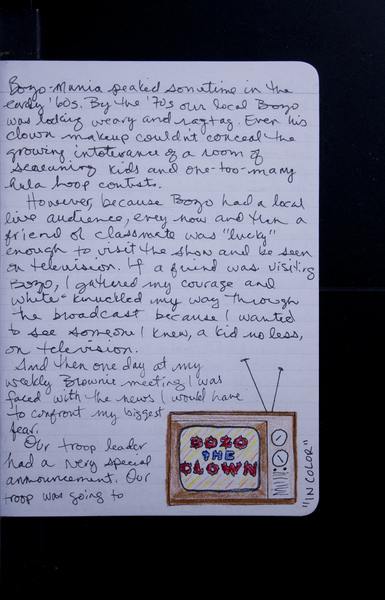 Bozo-Mania peaked sometime in the
early '60s. By the '70s our local Bozo
was looking weary and ragtag. Even his
clown makeup couldn't conceal the
growing intolerance of a room of
screaming kids and one-too-many
hula hoop contests.
However, because Bozo had a local
live audience, every now and then a
friend or classmate was "lucky"
enough to visit the show and be seen
on television. If a friend was visiting
Bozo, I gathered my courage and
white-knuckled my way through
the broadcast because I wanted
to see someone I knew, a kid no less,
on television.
And then one day at my
weekly Brownie meeting I was
faced with the news I would have
to confront my biggest
fear.
Our troop leader
had a very special
announcement. Our
troop was going to
BOZO
THE
CLOWN
"IN COLOR"